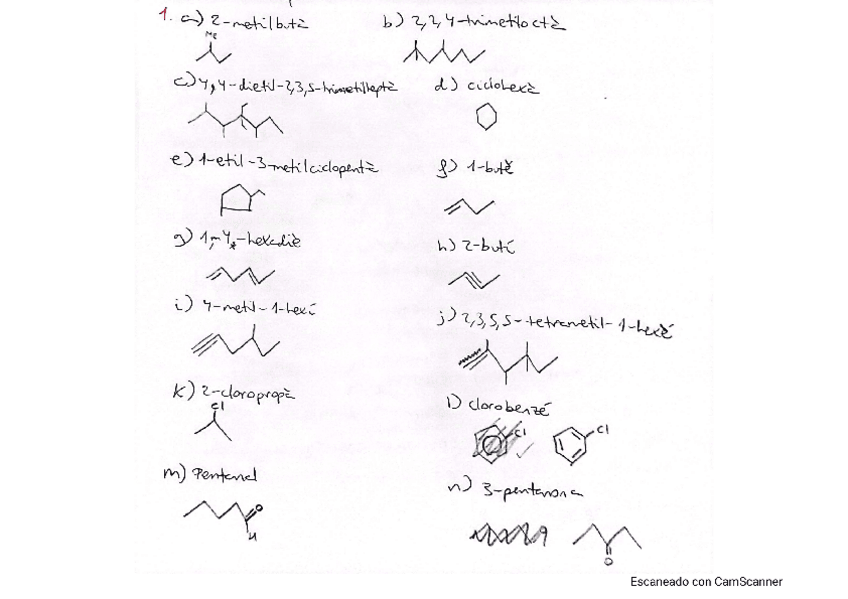 1. a) 2-metilbutà
b) 2,2,4-trimetiloctà
Me
c) 4,4-dietil-2,3,5-trimetilheptà
d) ciclohexà
e) 1-etil-3-metilciclopentà
f) 1-butè
g) 1,4-hexadiè
h) 2-butí
i) 4-metil-1-hexí
j) 2,3,5,5-tetrametil-1-hexè
k) 2-cloropropà
l) clorobenzé
Cl
Cl
Cl
m) Pentanal
n) 3-pentanona
O
H
O
Escaneado con CamScanner